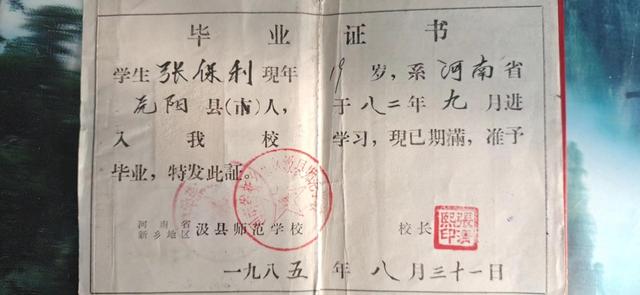 毕业证书
学生张保利现年19岁，系河南省
阳县(市)人，于八二年九月进
入我校学习，现已期满，准予
毕业，特发此证。
河南省新乡地区汲县师范学校 校长
一九八五年八月三十一日